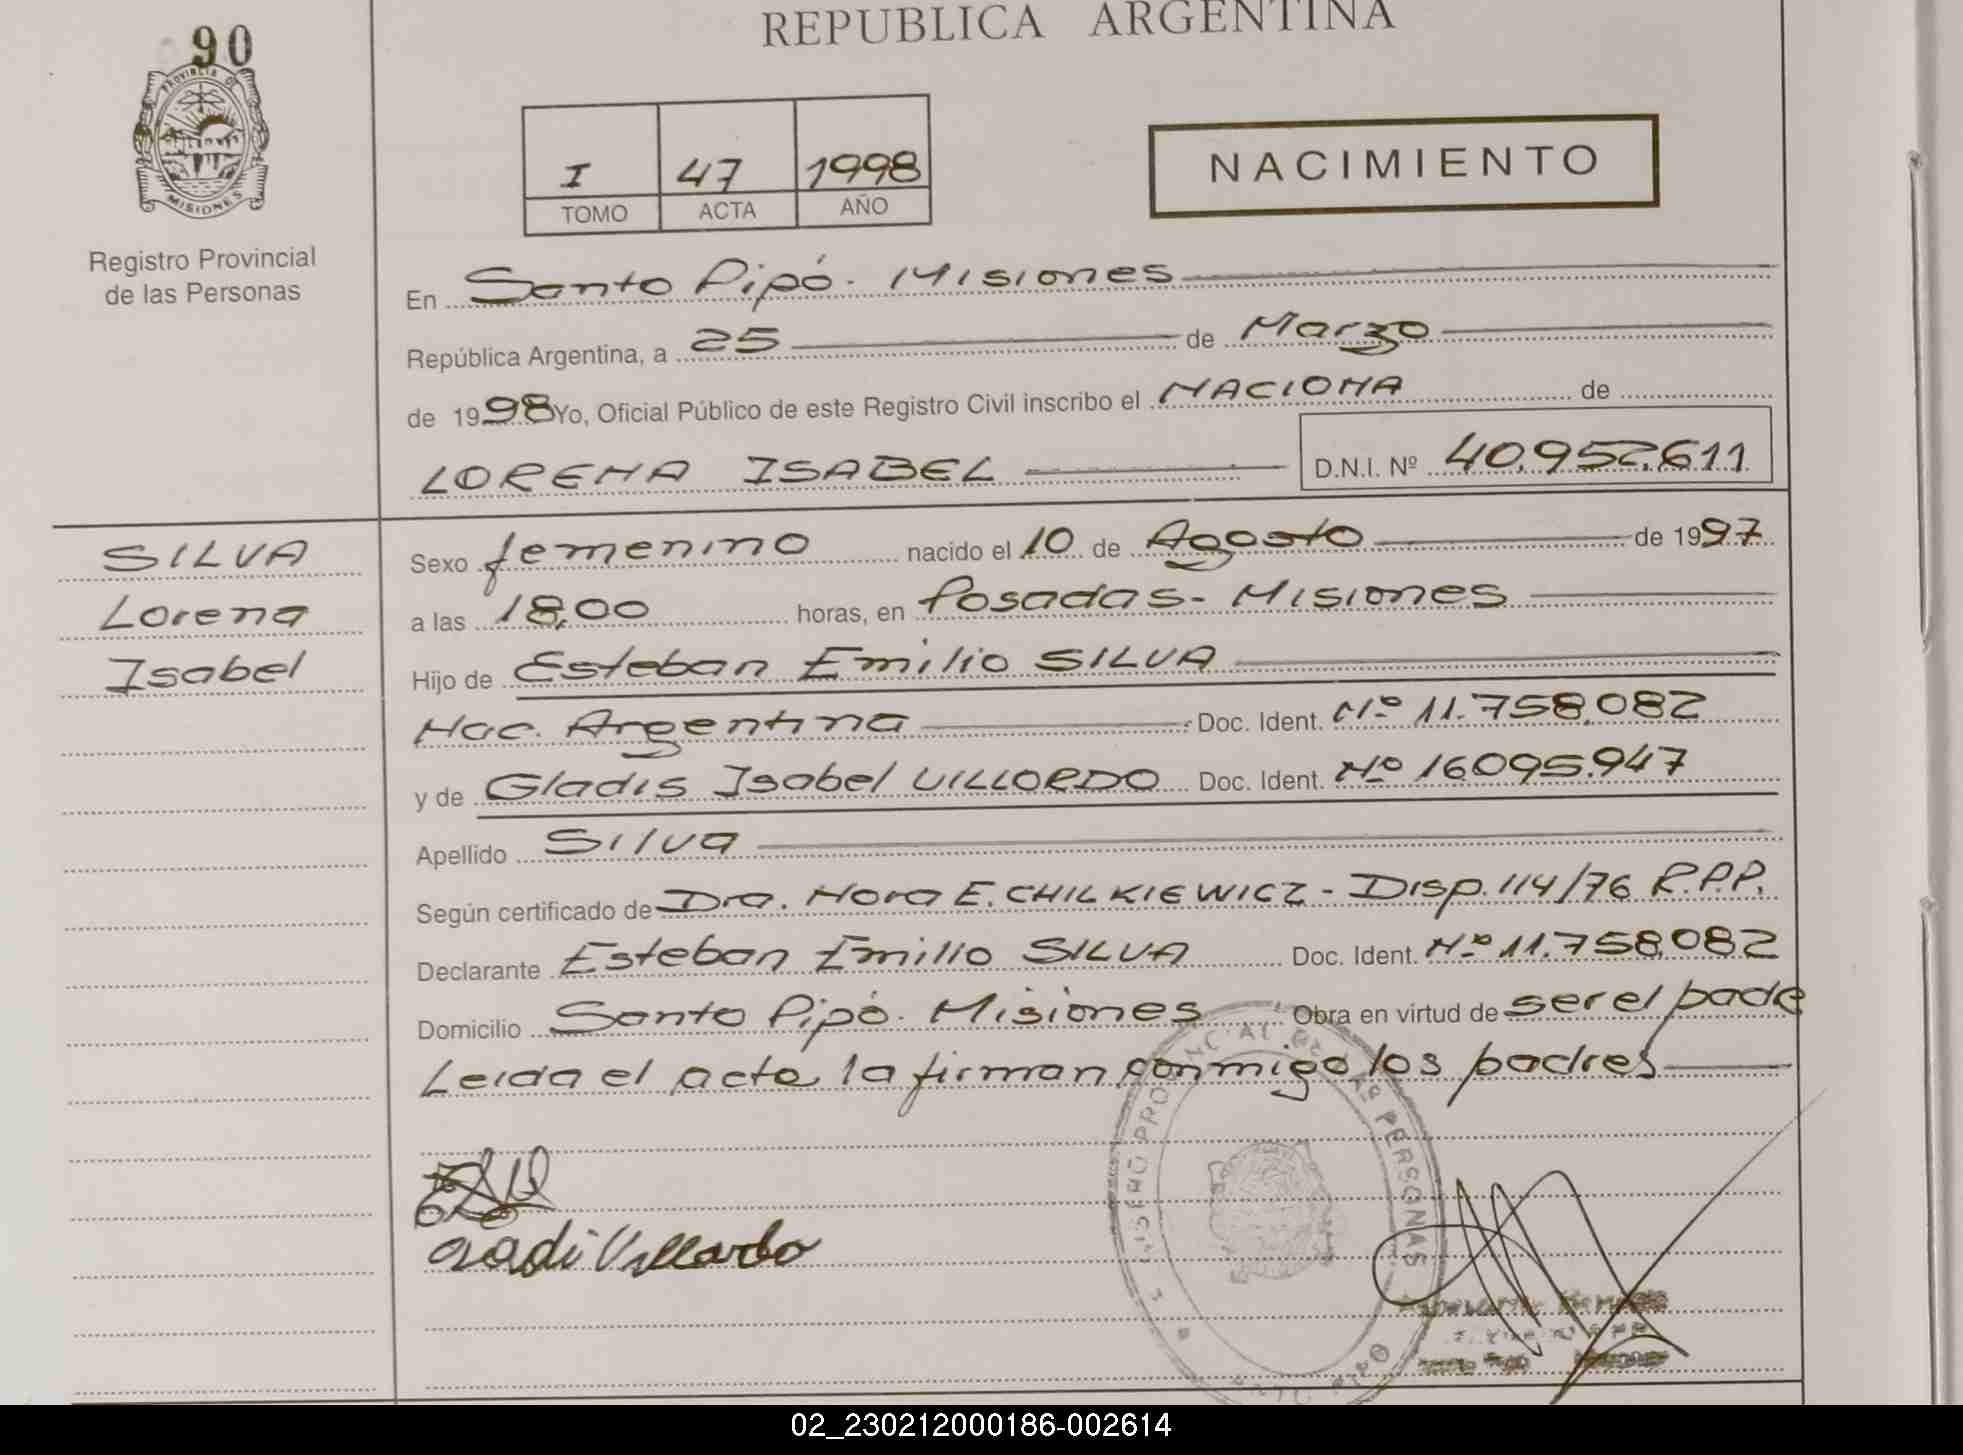 90
REPUBLICA ARGENTINA
PROVINCIA DE
MISIONES
Registro Provincial
de las Personas
I 47 1998
TOMO ACTA AÑO
NACIMIENTO
En Santo Pipó. Misiones
República Argentina, a 25 de Marzo
de 1998 Yo, Oficial Público de este Registro Civil inscribo el NACIONA de
LORENA ISABEL D.N.I. Nº 40.952.611
SILVA
Lorena
Isabel
Sexo femenino nacido el 10 de Agosto de 1997
a las 18,00 horas, en Posadas - Misiones
Hijo de Esteban Emilio SILVA
Nac. Argentina Doc. Ident. Nº 11.758.082
y de Gladis Isabel VILLORDO Doc. Ident. Nº 16.095.947
Apellido Silva
Según certificado de Dra. Nora E. CHILKIEWICZ - Disp. 114/76 R.P.P.
Declarante Esteban Emilio SILVA Doc. Ident. Nº 11.758.082
Domicilio Santo Pipó. Misiones Obra en virtud de ser el padre
Leida el acta la firman conmigo los padres
PERSONAS
Villordo
02_230212000186-002614